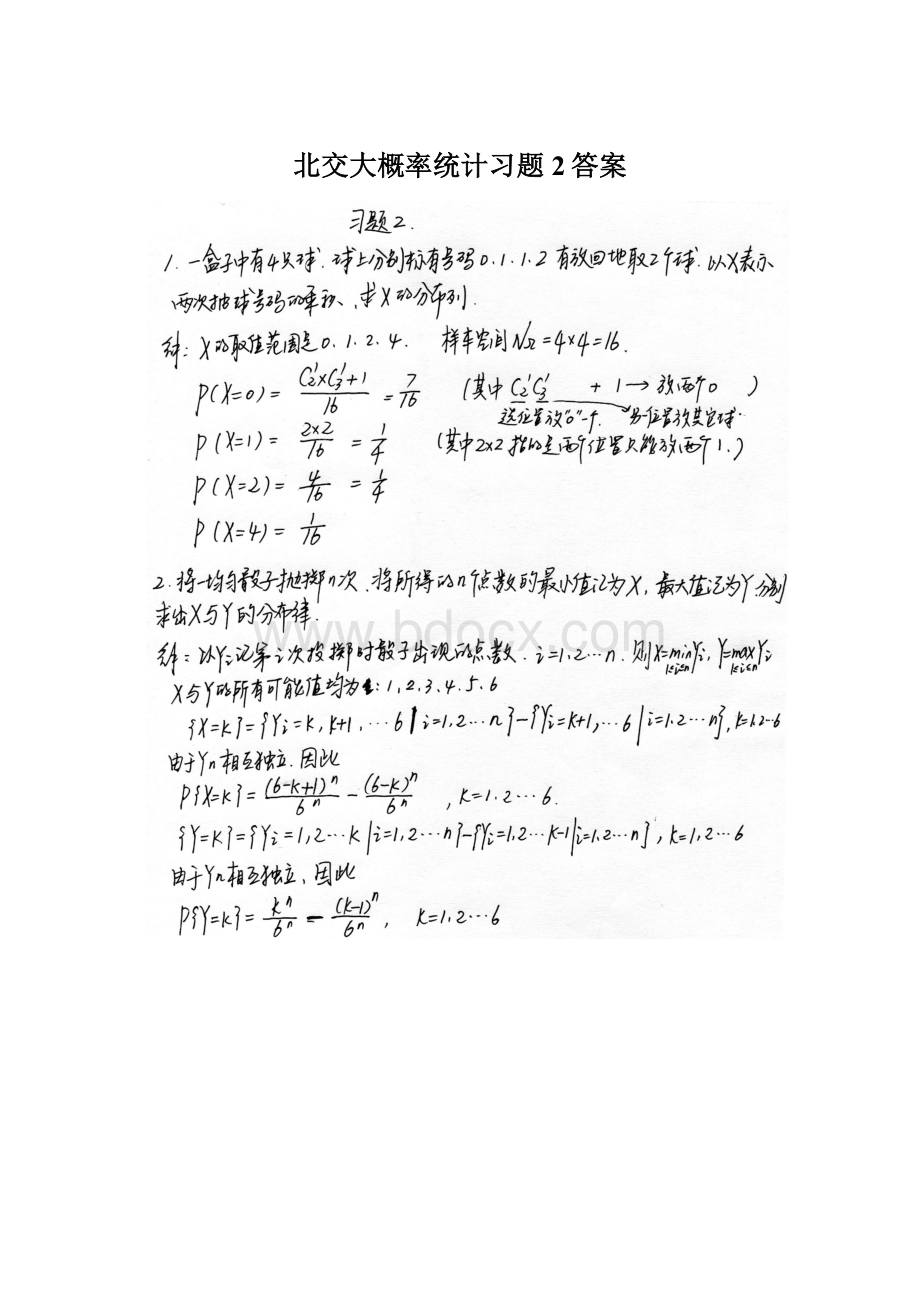 北交大概率统计习题2答案
习题2.
1. 一盒子中有4只球. 球上分别标有号码0.1.1.2 有放回地取2个球. 以X表示
两次抽球号码的乘积、求X的分布列.
解: X的取值范围是0.1.2.4. 样本空间 NΩ=4×4=16.
P(X=0)= (C₂¹×C₃¹+1)/16 = 7/16 (其中 C₂¹C₃¹ + 1→ 放两个0 )
选位置放"0"一个. 另一位置放其它球.
P(X=1)= 2×2/16 = 1/4 (其中2×2指的是两个位置只能放两个1.)
P(X=2)= 4/16 = 1/4
P(X=4)= 1/16
2. 将一均匀骰子抛掷n次、将所得的n个点数的最小值记为X, 最大值记为Y.分别
求出X与Y的分布律.
解: 以Yi记第i次投掷时骰子出现的点数. i=1,2…n. 则X=min Yi, Y=max Yi
1≤i≤n 1≤i≤n
X与Y的所有可能值均为: 1,2,3,4,5,6
{X=k}={Yi=k,k+1,…6|i=1,2…n}-{Yi=k+1,…6|i=1.2…n}, k=1.2…6
由于Yn相互独立.因此
P{X=k}= (6-k+1)ⁿ/6ⁿ - (6-k)ⁿ/6ⁿ , k=1.2…6.
{Y=k}={Yi=1,2…k|i=1,2…n}-{Yi=1,2…k-1|i=1,2…n}, k=1,2…6
由于Yn相互独立、因此
P{Y=k}= kⁿ/6ⁿ - (k-1)ⁿ/6ⁿ, k=1,2…6
www.bdocx.com